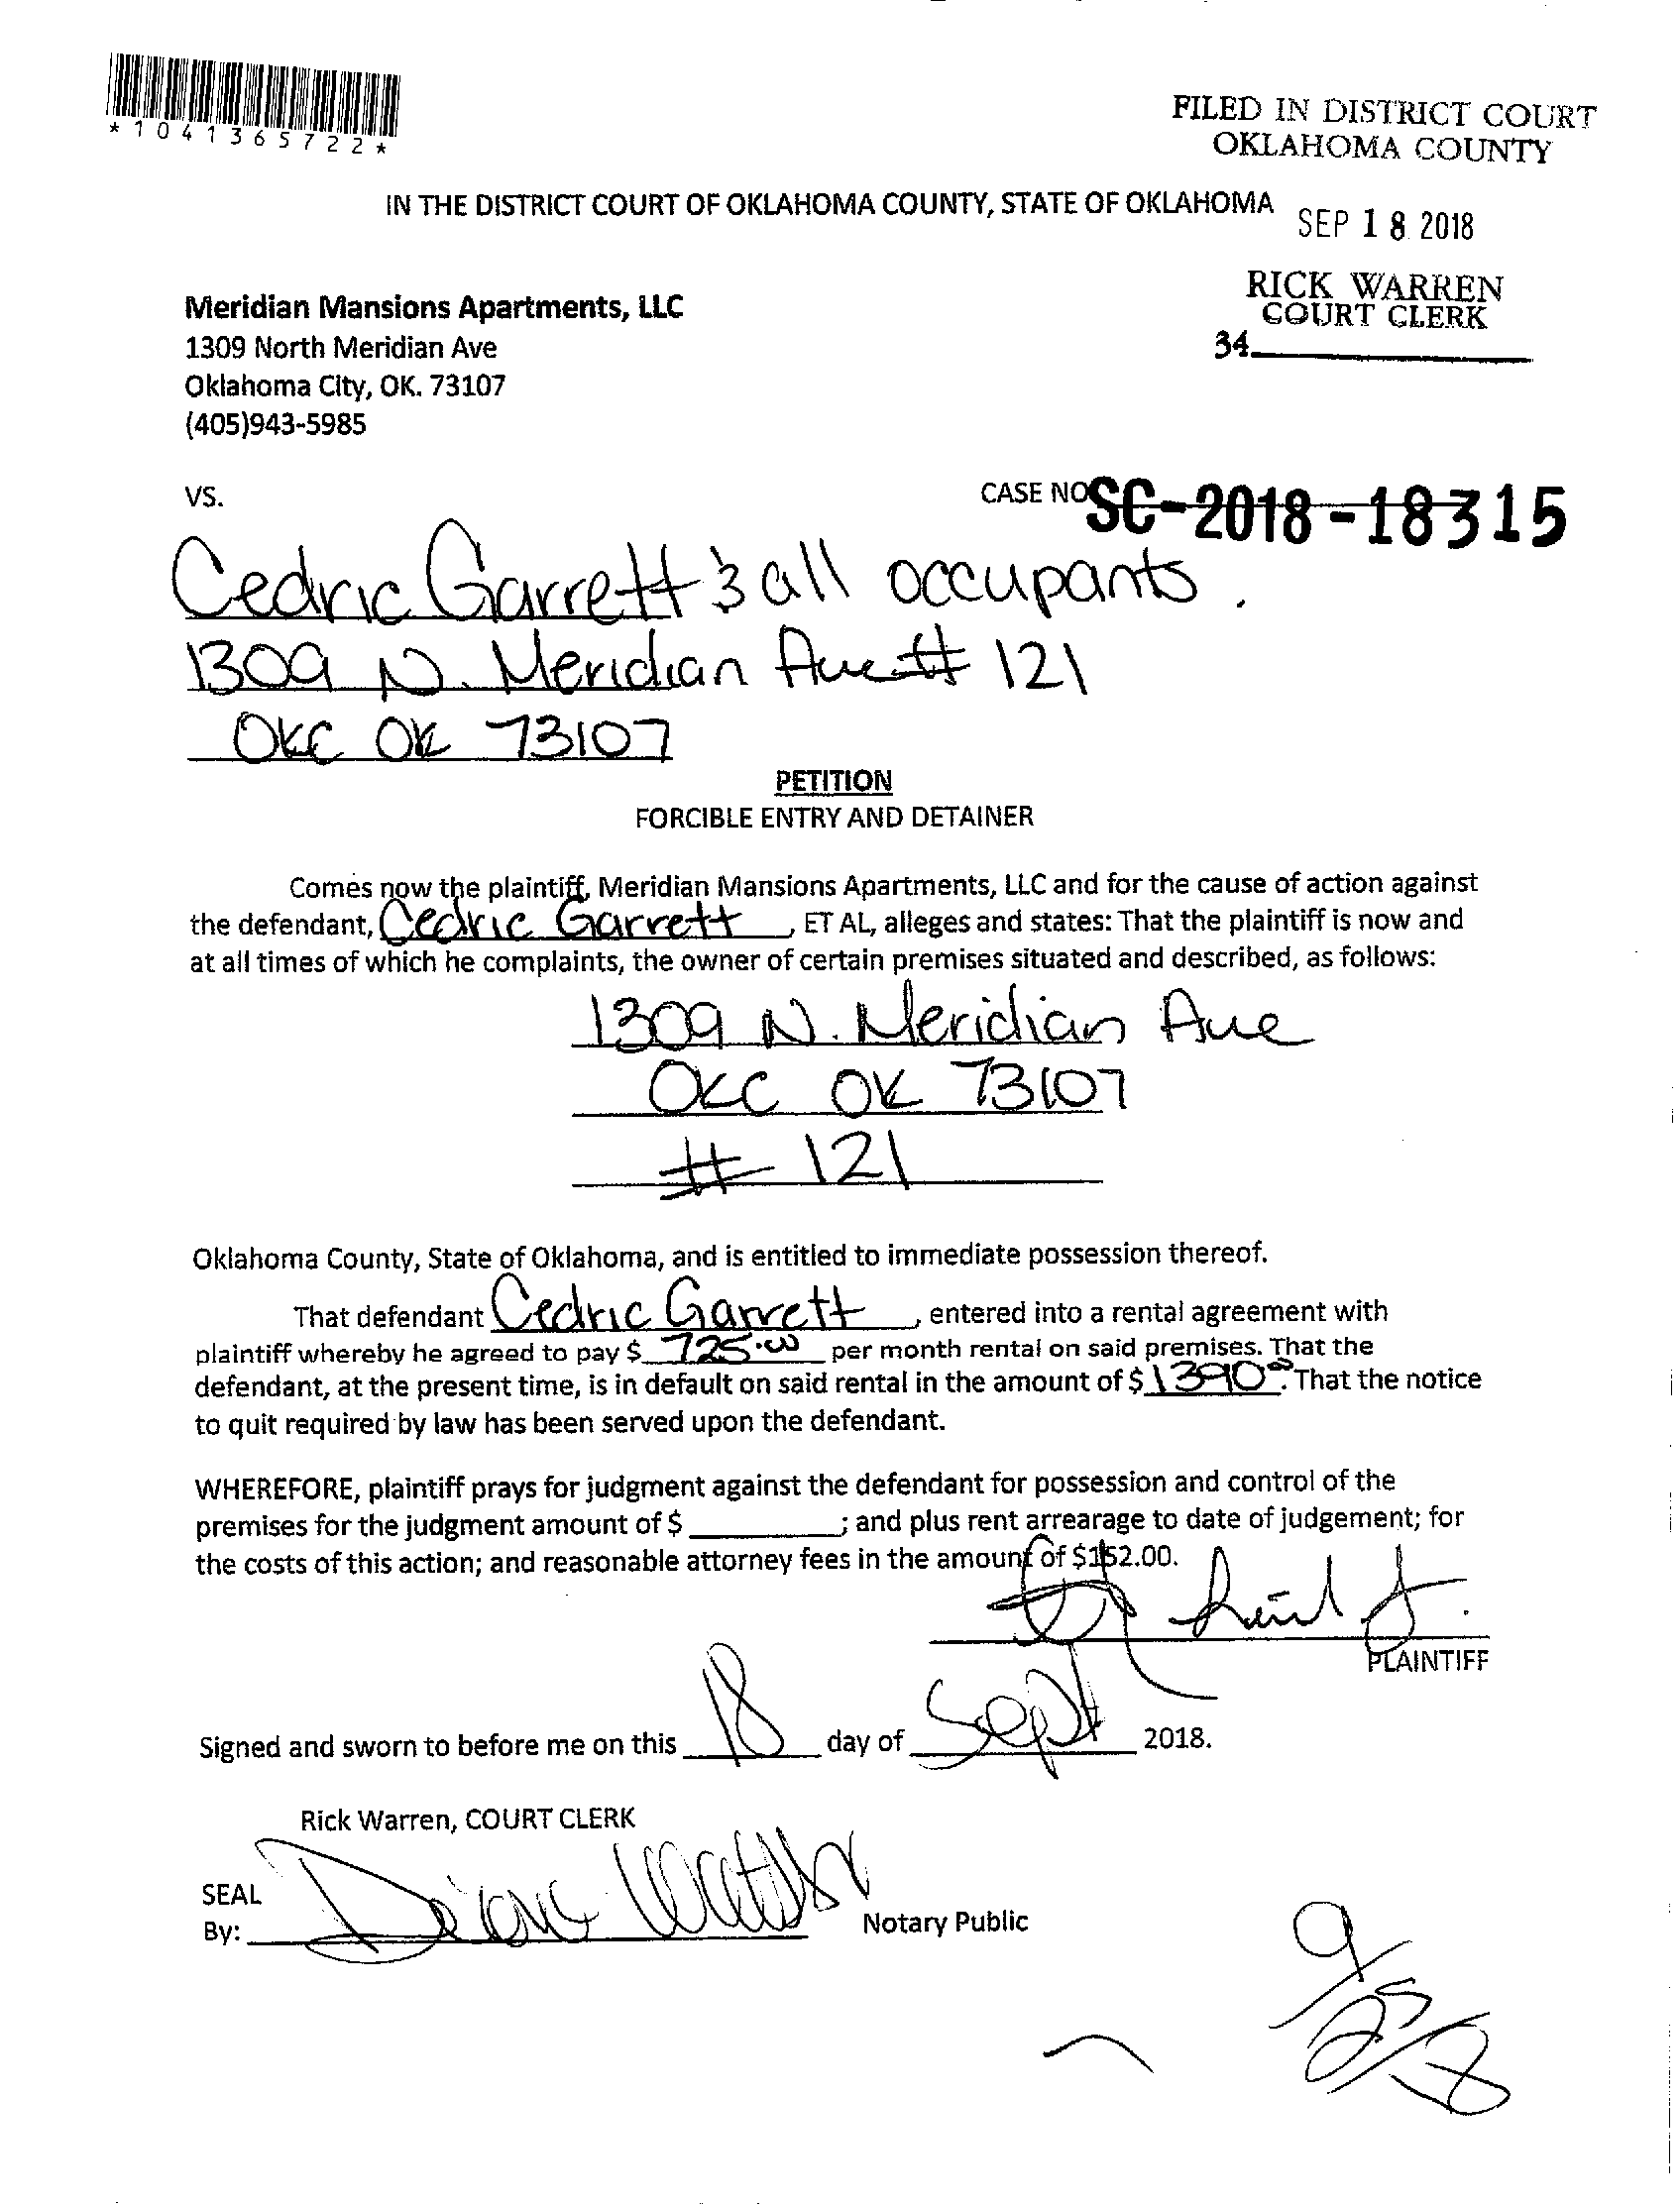 *1041365722*
FILED IN DISTRICT COURT
OKLAHOMA COUNTY
IN THE DISTRICT COURT OF OKLAHOMA COUNTY, STATE OF OKLAHOMA
SEP 18 2018
RICK WARREN
COURT CLERK
34
Meridian Mansions Apartments, LLC
1309 North Meridian Ave
Oklahoma City, OK. 73107
(405)943-5985
VS.
CASE NO SC-2018-18315
Cedric Garrett & all occupants.
1309 N. Meridian Ave # 121
OKC OK 73107
PETITION
FORCIBLE ENTRY AND DETAINER
Comes now the plaintiff, Meridian Mansions Apartments, LLC and for the cause of action against
the defendant, Cedric Garrett, ET AL, alleges and states: That the plaintiff is now and
at all times of which he complaints, the owner of certain premises situated and described, as follows:
1309 N. Meridian Ave
OKC OK 73107
# 121
Oklahoma County, State of Oklahoma, and is entitled to immediate possession thereof.
That defendant Cedric Garrett, entered into a rental agreement with
plaintiff whereby he agreed to pay $ 725.00 per month rental on said premises. That the
defendant, at the present time, is in default on said rental in the amount of $ 1390.00. That the notice
to quit required by law has been served upon the defendant.
WHEREFORE, plaintiff prays for judgment against the defendant for possession and control of the
premises for the judgment amount of $ ; and plus rent arrearage to date of judgement; for
the costs of this action; and reasonable attorney fees in the amount of $152.00.
PLAINTIFF
Signed and sworn to before me on this 18 day of Sept 2018.
Rick Warren, COURT CLERK
SEAL
By: Notary Public